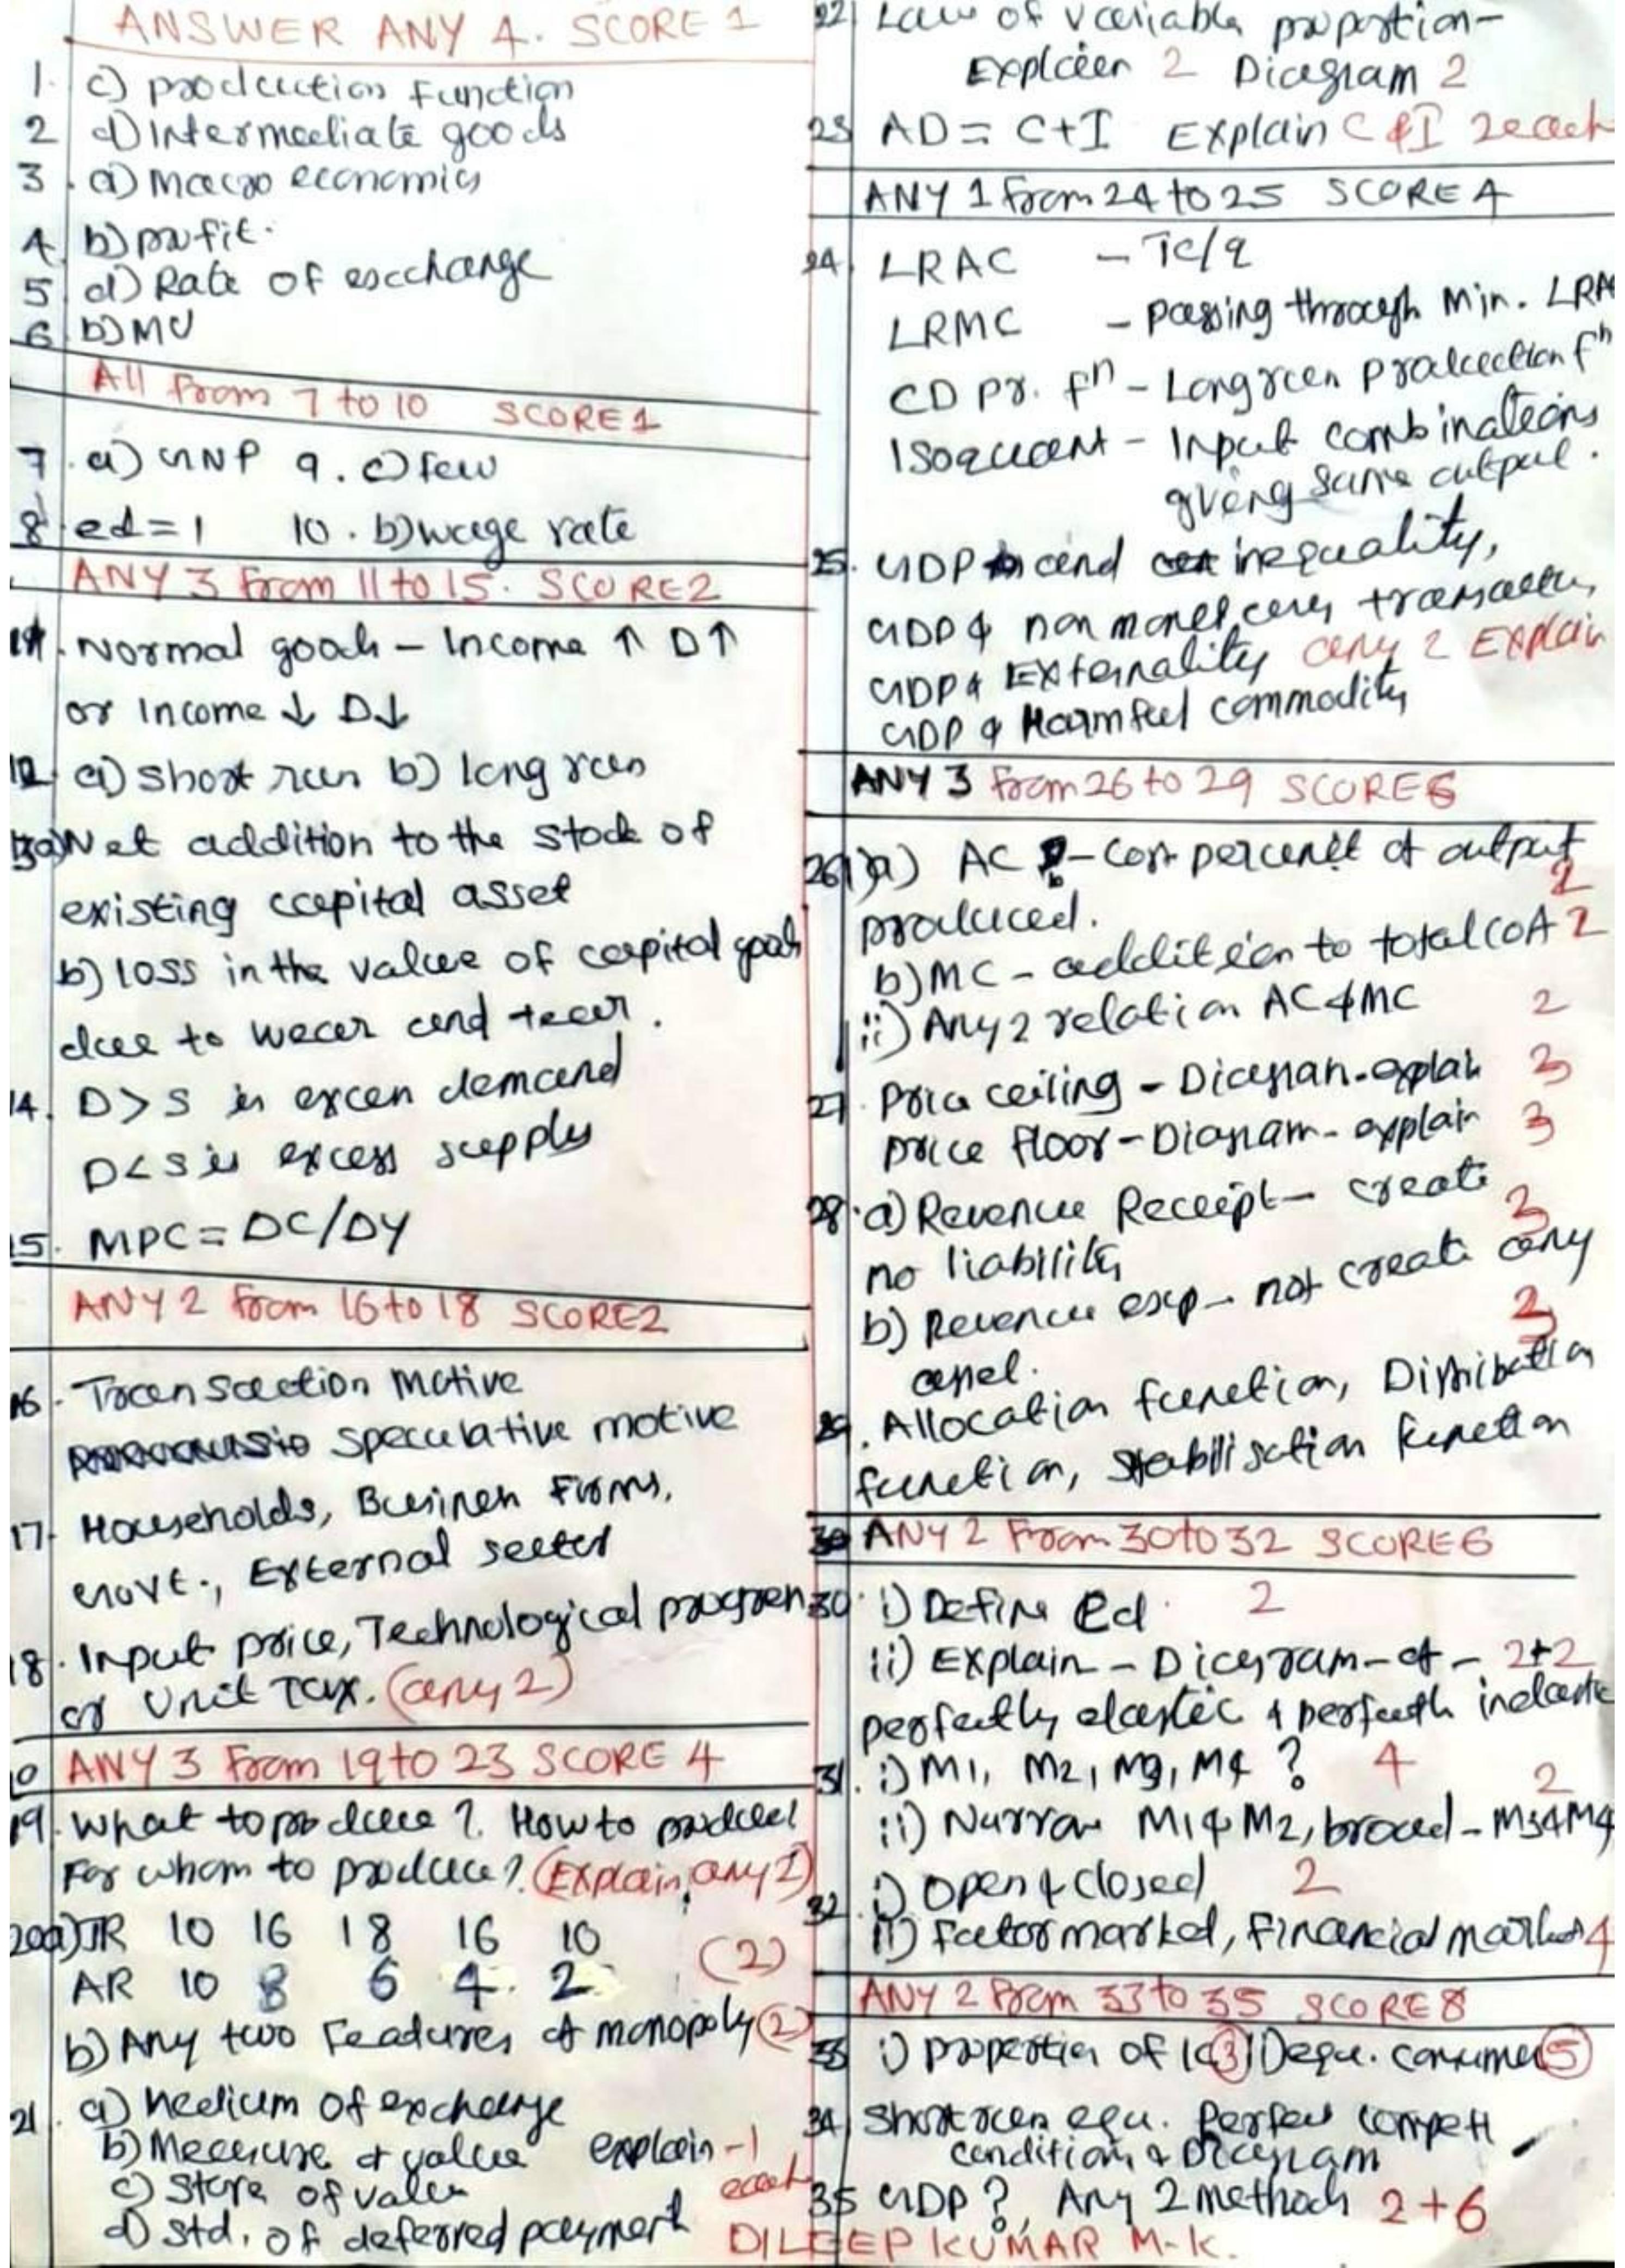 ANSWER ANY 4. SCORE 1
1. c) production Function
2 d) Intermediate goods
3. a) macro economics
4 b) profit.
5 d) Rate of exchange
6 b) MU
All from 7 to 10 SCORE 1
7. a) GNP 9. c) few
8 ed = 1 10. b) wage rate
ANY 3 from 11 to 15. SCORE 2
11. Normal goods - Income ↑ D↑
or Income ↓ D↓
12 a) short run b) long run
13 a) Net addition to the stock of
existing capital asset
b) loss in the value of capital goods
due to wear and tear.
14. D > S is excess demand
D < S is excess supply
15. MPC = DC/DY
ANY 2 from 16 to 18 SCORE 2
16. Transaction motive
speculative motive
17. Households, Business Firms,
Govt., External sector
18. Input price, Technological progress
or Unit Tax. (any 2)
ANY 3 From 19 to 23 SCORE 4
19. What to produce? How to produce
For whom to produce? (Explain any 2)
20 a) TR 10 16 18 16 10
AR 10 8 6 4 2 (2)
b) Any two Features of monopoly (2)
21. a) medium of exchange
b) Measure of value explain - 1
c) Store of value each
d) std. of deferred payment
22 Law of variable proportion-
Explain 2 Diagram 2
23 AD = C+I Explain C & I 2 each
ANY 1 from 24 to 25 SCORE 4
24 LRAC - TC/q
LRMC - passing through Min. LRA
CD pr. fn - Long run production fn
Isoquant - Input combinations
giving same output.
25. GDP and inequality,
GDP & non monetary transaction,
GDP & Externality any 2 Explain
GDP & Harmful commodity
ANY 3 from 26 to 29 SCORE 6
26 i) a) AC - Cost per unit of output
produced. 2
b) MC - addition to total cost 2
ii) Any 2 relation AC & MC 2
27. Price ceiling - Diagram - explain 3
price floor - Diagram - explain 3
28. a) Revenue Receipt - create
no liability 3
b) Revenue exp - not create any
asset. 3
29. Allocation function, Distribution
function, stabilisation function
30 ANY 2 From 30 to 32 SCORE 6
30. i) Define ed. 2
ii) Explain - Diagram - of - 2+2
perfectly elastic & perfectly inelastic
31. i) M1, M2, M3, M4 ? 4
ii) Narrow M1 & M2, broad - M3 & M4 2
32. i) Open & closed 2
ii) Factor market, Financial market 4
ANY 2 from 33 to 35 SCORE 8
33 i) properties of IC (3) Dequ. consumer (5)
34 Short run equ. Perfect compett
condition & Diagram
35 GDP?, Any 2 methods 2+6
DILEEP KUMAR M.K.